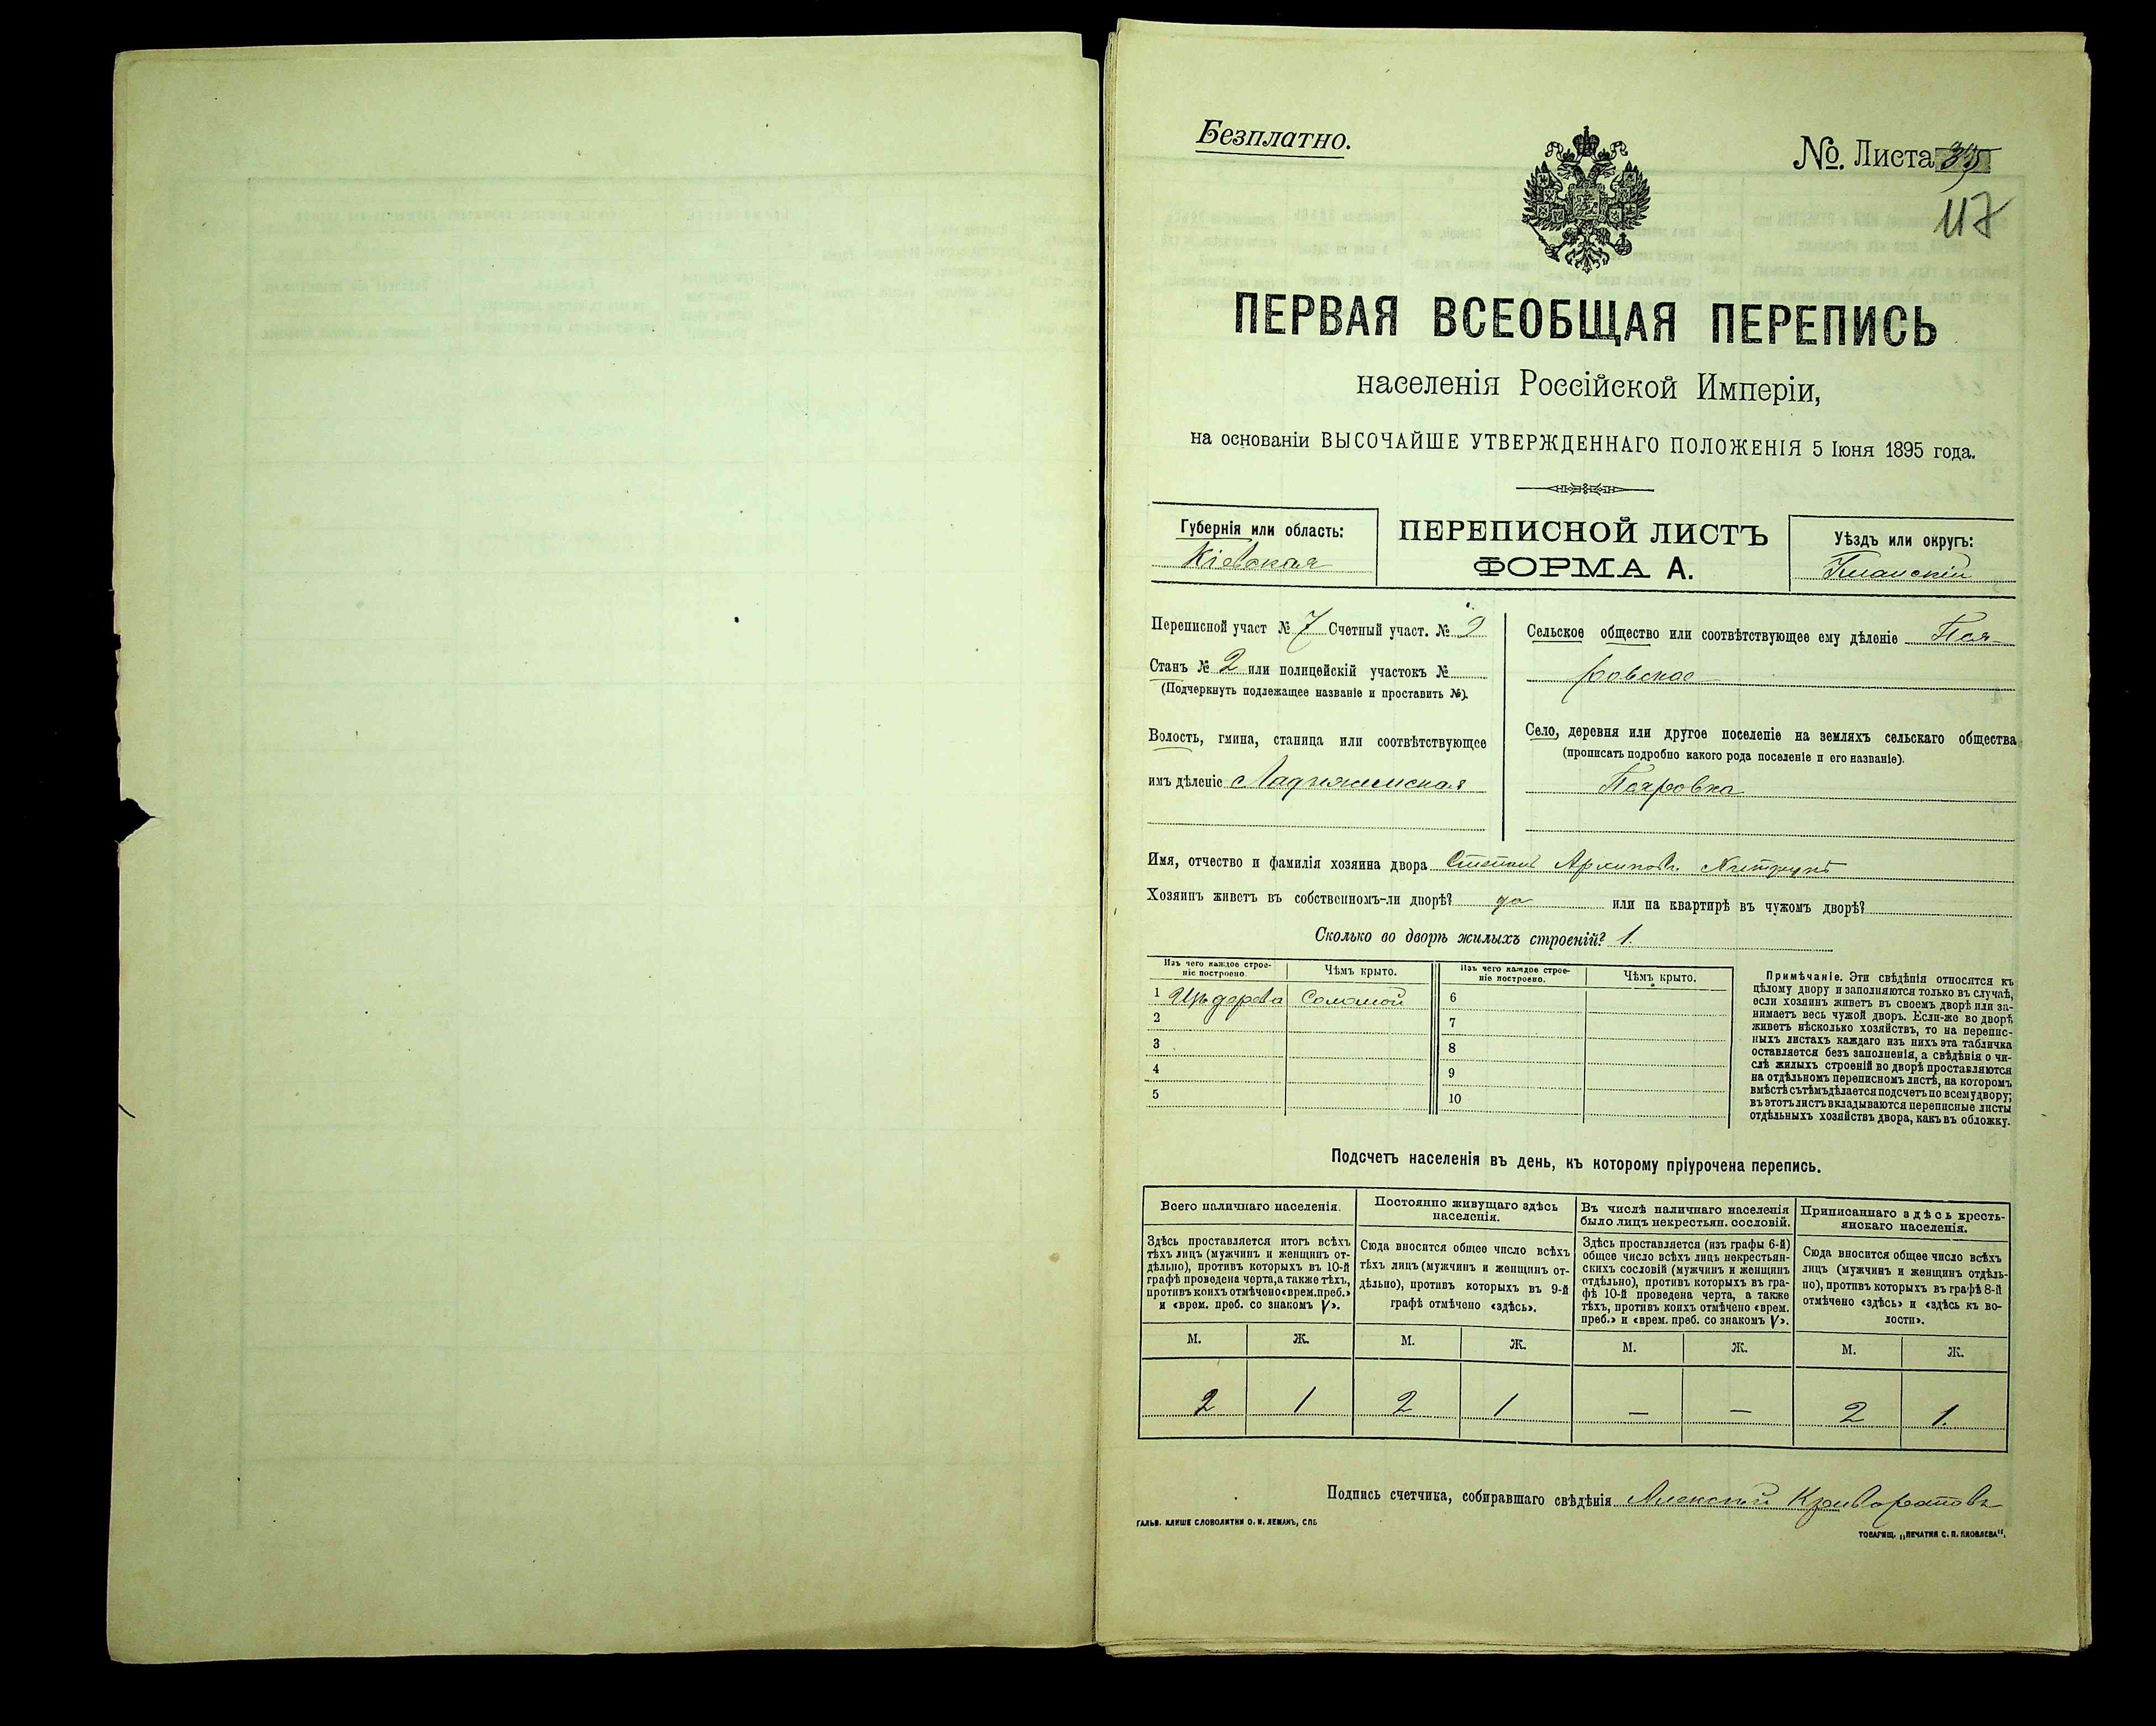 Безплатно.
№. Листа 39
117
ПЕРВАЯ ВСЕОБЩАЯ ПЕРЕПИСЬ
населенія Россійской Имперіи,
на основаніи ВЫСОЧАЙШЕ УТВЕРЖДЕННАГО ПОЛОЖЕНІЯ 5 Іюня 1895 года.
Губернія или область:
Кіевская
ПЕРЕПИСНОЙ ЛИСТЪ
ФОРМА А.
Уѣздъ или округъ:
Уманскій
Переписной участ № 7 Счетный участ. № 9
Станъ № 2 или полицейскій участокъ №
(Подчеркнуть подлежащее названіе и проставить №).
Волость, гмина, станица или соотвѣтствующее
имъ дѣленіе Ладыжинская
Сельское общество или соотвѣтствующее ему дѣленіе Пся-
ровское
Село, деревня или другое поселеніе на земляхъ сельскаго общества
(прописать подробно какого рода поселеніе и его названіе).
Псяровка
Имя, отчество и фамилія хозяина двора Степанъ Архиповъ
Хозяинъ живетъ въ собственномъ-ли дворѣ? да или на квартирѣ въ чужомъ дворѣ?
Сколько во дворѣ жилыхъ строеній? 1.
Изъ чего каждое строе-
ніе построено.
Чѣмъ крыто.
Изъ чего каждое строе-
ніе построено.
Чѣмъ крыто.
1 Изъ дерева Соломой
2
3
4
5
6
7
8
9
10
Примѣчаніе. Эти свѣдѣнія относятся къ
цѣлому двору и заполняются только въ случаѣ,
если хозяинъ живетъ въ своемъ дворѣ или за-
нимаетъ весь чужой дворъ. Если-же во дворѣ
живетъ нѣсколько хозяйствъ, то на перепис-
ныхъ листахъ каждаго изъ нихъ эта табличка
оставляется безъ заполненія, а свѣдѣнія о чи-
слѣ жилыхъ строеній во дворѣ проставляются
на отдѣльномъ переписномъ листѣ, на которомъ
вмѣстѣ съ тѣмъ дѣлается подсчетъ по всему двору;
въ этотъ листъ вкладываются переписные листы
отдѣльныхъ хозяйствъ двора, какъ въ обложку.
Подсчетъ населенія въ день, къ которому пріурочена перепись.
Всего наличнаго населенія.
Здѣсь проставляется итогъ всѣхъ
тѣхъ лицъ (мужчинъ и женщинъ от-
дѣльно), противъ которыхъ въ 10-й
графѣ проведена черта, а также тѣхъ,
противъ коихъ отмѣчено «врем. преб.»
и «врем. преб. со знакомъ V».
Постоянно живущаго здѣсь
населенія.
Сюда вносится общее число всѣхъ
тѣхъ лицъ (мужчинъ и женщинъ от-
дѣльно), противъ которыхъ въ 9-й
графѣ отмѣчено «здѣсь».
Въ числѣ наличнаго населенія
было лицъ некрестьян. сословій.
Здѣсь проставляется (изъ графы 6-й)
общее число всѣхъ лицъ некрестьян-
скихъ сословій (мужчинъ и женщинъ
отдѣльно), противъ которыхъ въ гра-
фѣ 10-й проведена черта, а также
тѣхъ, противъ коихъ отмѣчено «врем.
преб.» и «врем. преб. со знакомъ V».
Приписаннаго здѣсь кресть-
янскаго населенія.
Сюда вносится общее число всѣхъ
лицъ (мужчинъ и женщинъ отдѣль-
но), противъ которыхъ въ графѣ 8-й
отмѣчено «здѣсь» и «здѣсь къ во-
лости».
М. Ж. М. Ж. М. Ж. М. Ж.
2 1 2 1 — — 2 1.
Подпись счетчика, собиравшаго свѣдѣнія Алексѣй
ГАЛЬВ. КЛИШЕ СЛОВОЛИТНИ О. И. ЛЕМАНЪ, СПБ
ТОВАРИЩ. „ПЕЧАТНЯ С. П. ЯКОВЛЕВА".